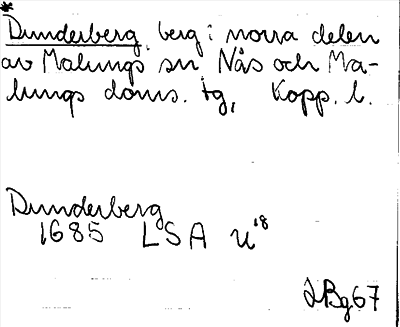 *
Dunderberg, berg i norra delen
av Malungs sn, Nås och Ma-
lungs doms. tg, Kopp. l.
Dunderberg
1685 LSA U18
LBg67